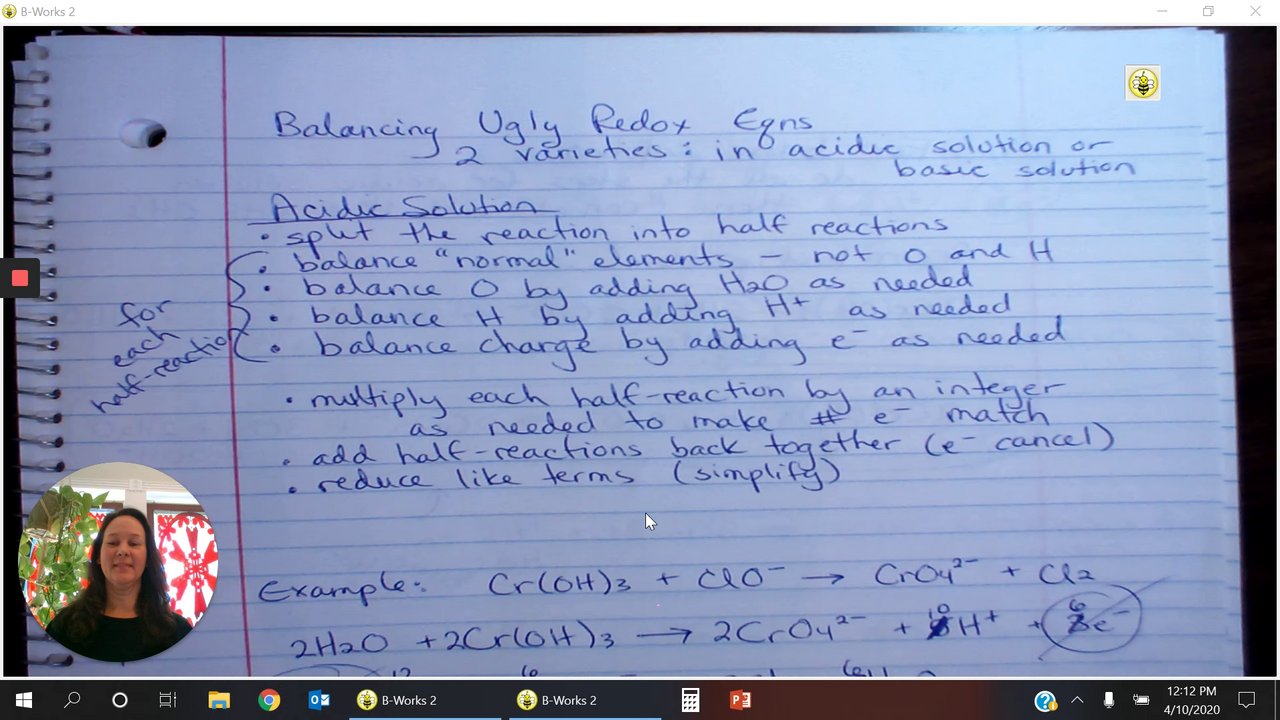 B-Works 2
Balancing Ugly Redox Eqns
2 varieties: in acidic solution or
basic solution
Acidic Solution
• split the reaction into half reactions
• balance "normal" elements - not O and H
• balance O by adding H2O as needed
• balance H by adding H+ as needed
• balance charge by adding e- as needed
for
each
half-reaction
• multiply each half-reaction by an integer
as needed to make # e- match
• add half-reactions back together (e- cancel)
• reduce like terms (simplify)
Example: Cr(OH)3 + ClO- → CrO4 2- + Cl2
2H2O + 2Cr(OH)3 → 2CrO4 2- + 10 H+ + 6 e-
B-Works 2
B-Works 2
12:12 PM
4/10/2020